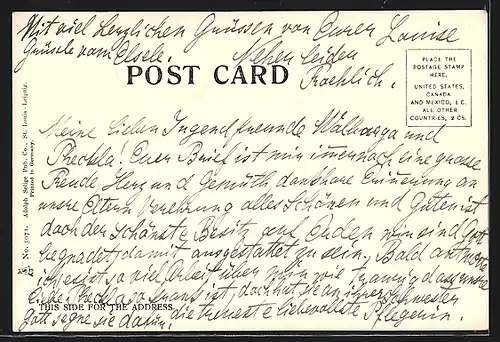 Mit viel herzlichen Grüssen von Eurer Louise
Grüsse vom Elsele.
POST CARD
PLACE THE
POSTAGE STAMP
HERE.
UNITED STATES,
CANADA
AND MEXICO, 1 C.
ALL OTHER
COUNTRIES, 2 CS.
No. 3071. Adolph Selige Pub. Co., St. Louis-Leipzig.
Printed in Germany.
Meine lieben Jugendfreunde Walburga und
Euer Brief ist mir immer noch eine grosse
Freude Herz und Gemüth dankbare Erinnerung an
unsre Eltern Verehrung alles Schönen und Guten ist
doch der Schönste Besitz auf Erden wir sind Gott
begnadet, damit ausgestattet zu sein. Bald
ist so viel Arbeit über wie traurig dass unsre
liebe so krank ist, doch hat sie an ihrer Schwester
THIS SIDE FOR THE ADDRESS.
Gott segne sie dafür. die treueste liebevollste Pflegerin.